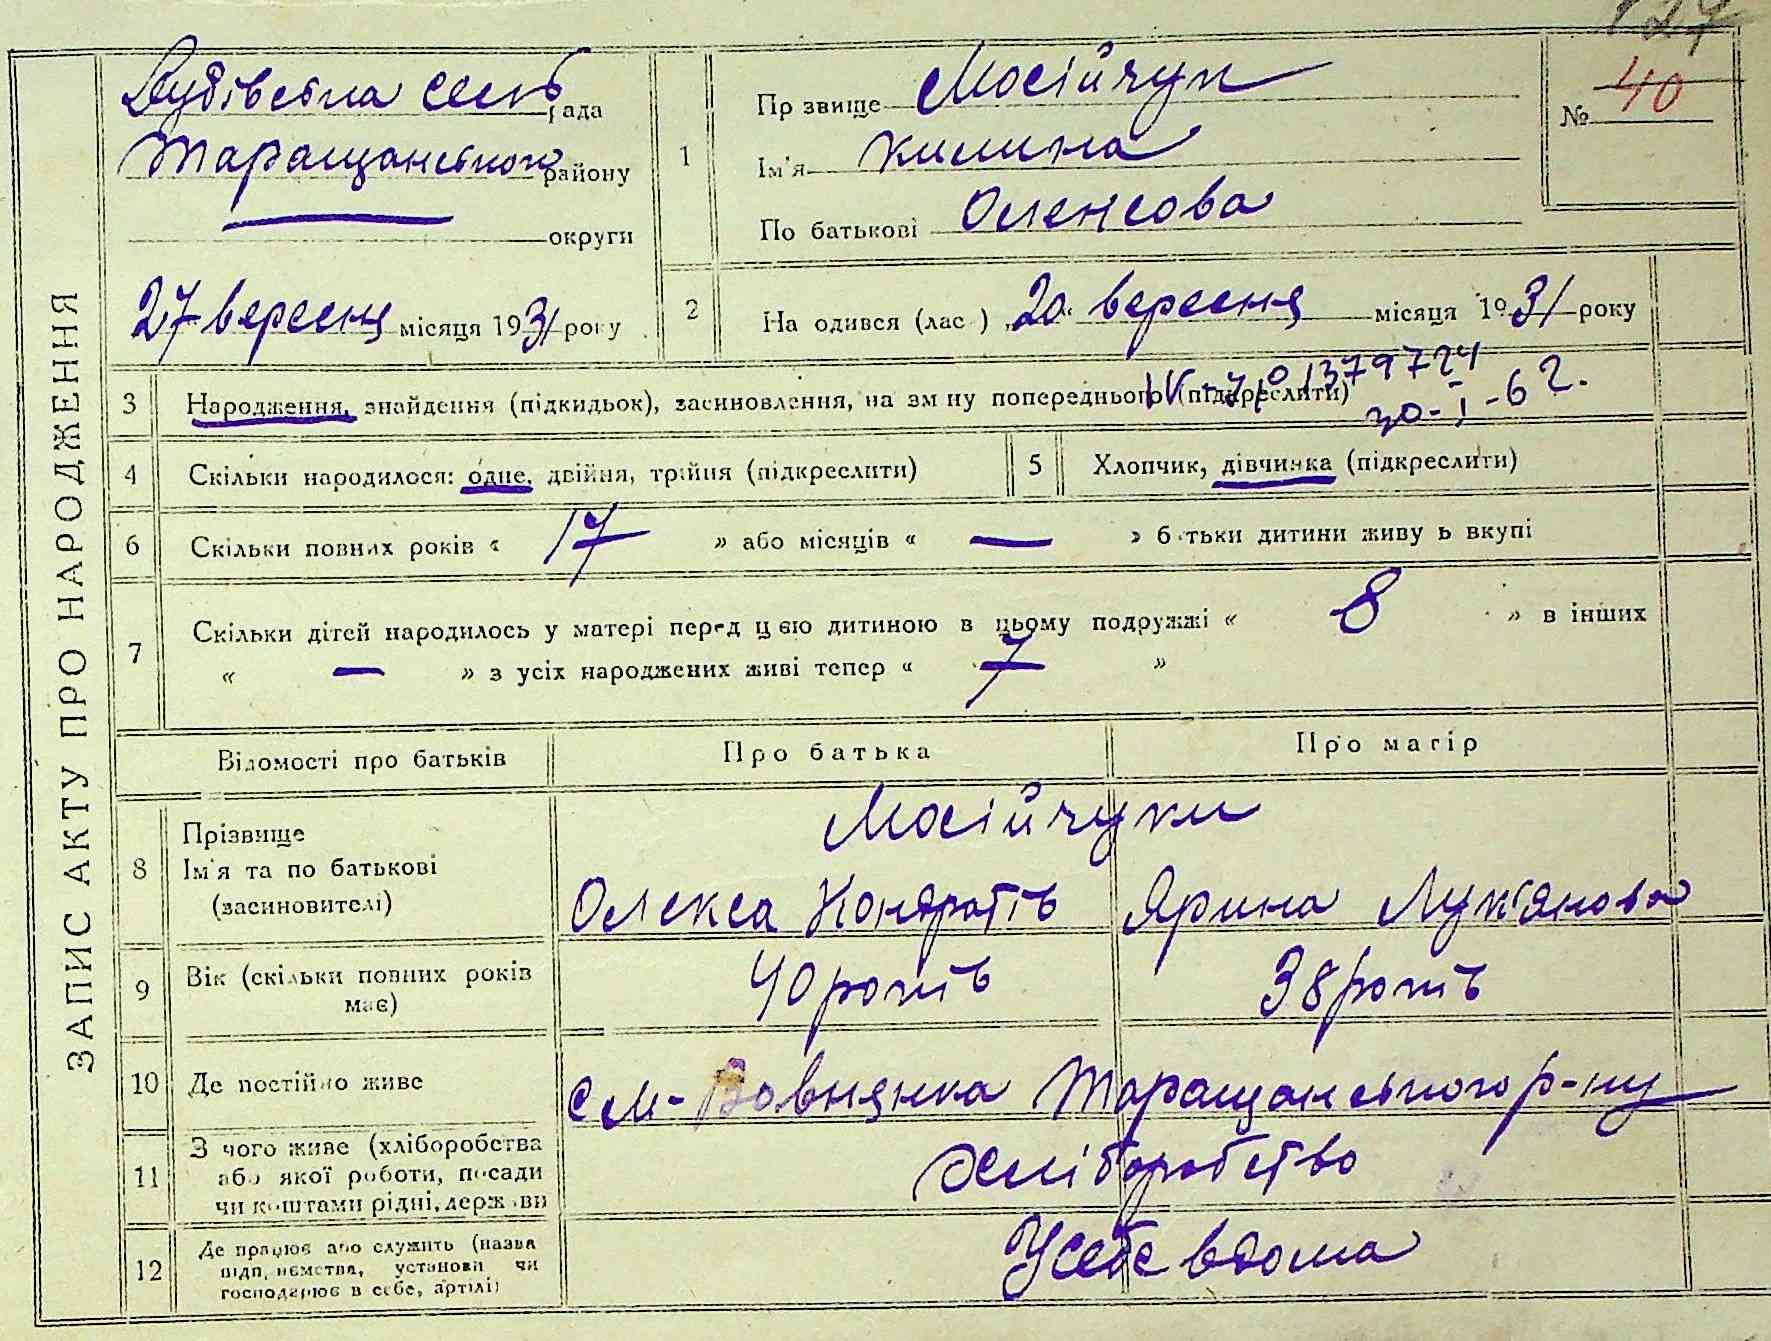 127
ЗАПИС АКТУ ПРО НАРОДЖЕННЯ
Дубівська сільрада
Таращанського району
округи
27 вересня місяця 1931 року
1
Прізвище Мосійчук
Ім'я Килина
По батькові Олексова
№ 40
2 На одився (лас ) „20" вересня місяця 1931 року
3 Народження, знайдення (підкидьок), засиновлення, на зм ну попереднього (підкреслити)
1379724
30-I-62.
4 Скільки народилося: одне, двійня, трійня (підкреслити)
5 Хлопчик, дівчинка (підкреслити)
6 Скільки повних років « 17 » або місяців « — » б тьки дитини живу ь вкупі
7 Скільки дітей народилось у матері перед цією дитиною в цьому подружжі « 8 » в інших
« — » з усіх народжених живі тепер « 7 »
Відомості про батьків Про батька Про матір
8 Прізвище
Ім'я та по батькові
(засиновителі)
Мосійчуки
Олекса Кондратів Ярина Лук'янова
9 Вік (скільки повних років має)
40 років 38 років
10 Де постійно живе
см- Вовнянка Таращанського р-ну
11 З чого живе (хліборобства
або якої роботи, посади
чи коштами рідні, держави
Хліборобство
12 Де працює або служить (назва
підп,иємства, установи чи
господарює в себе, артілі)
У себе вдома